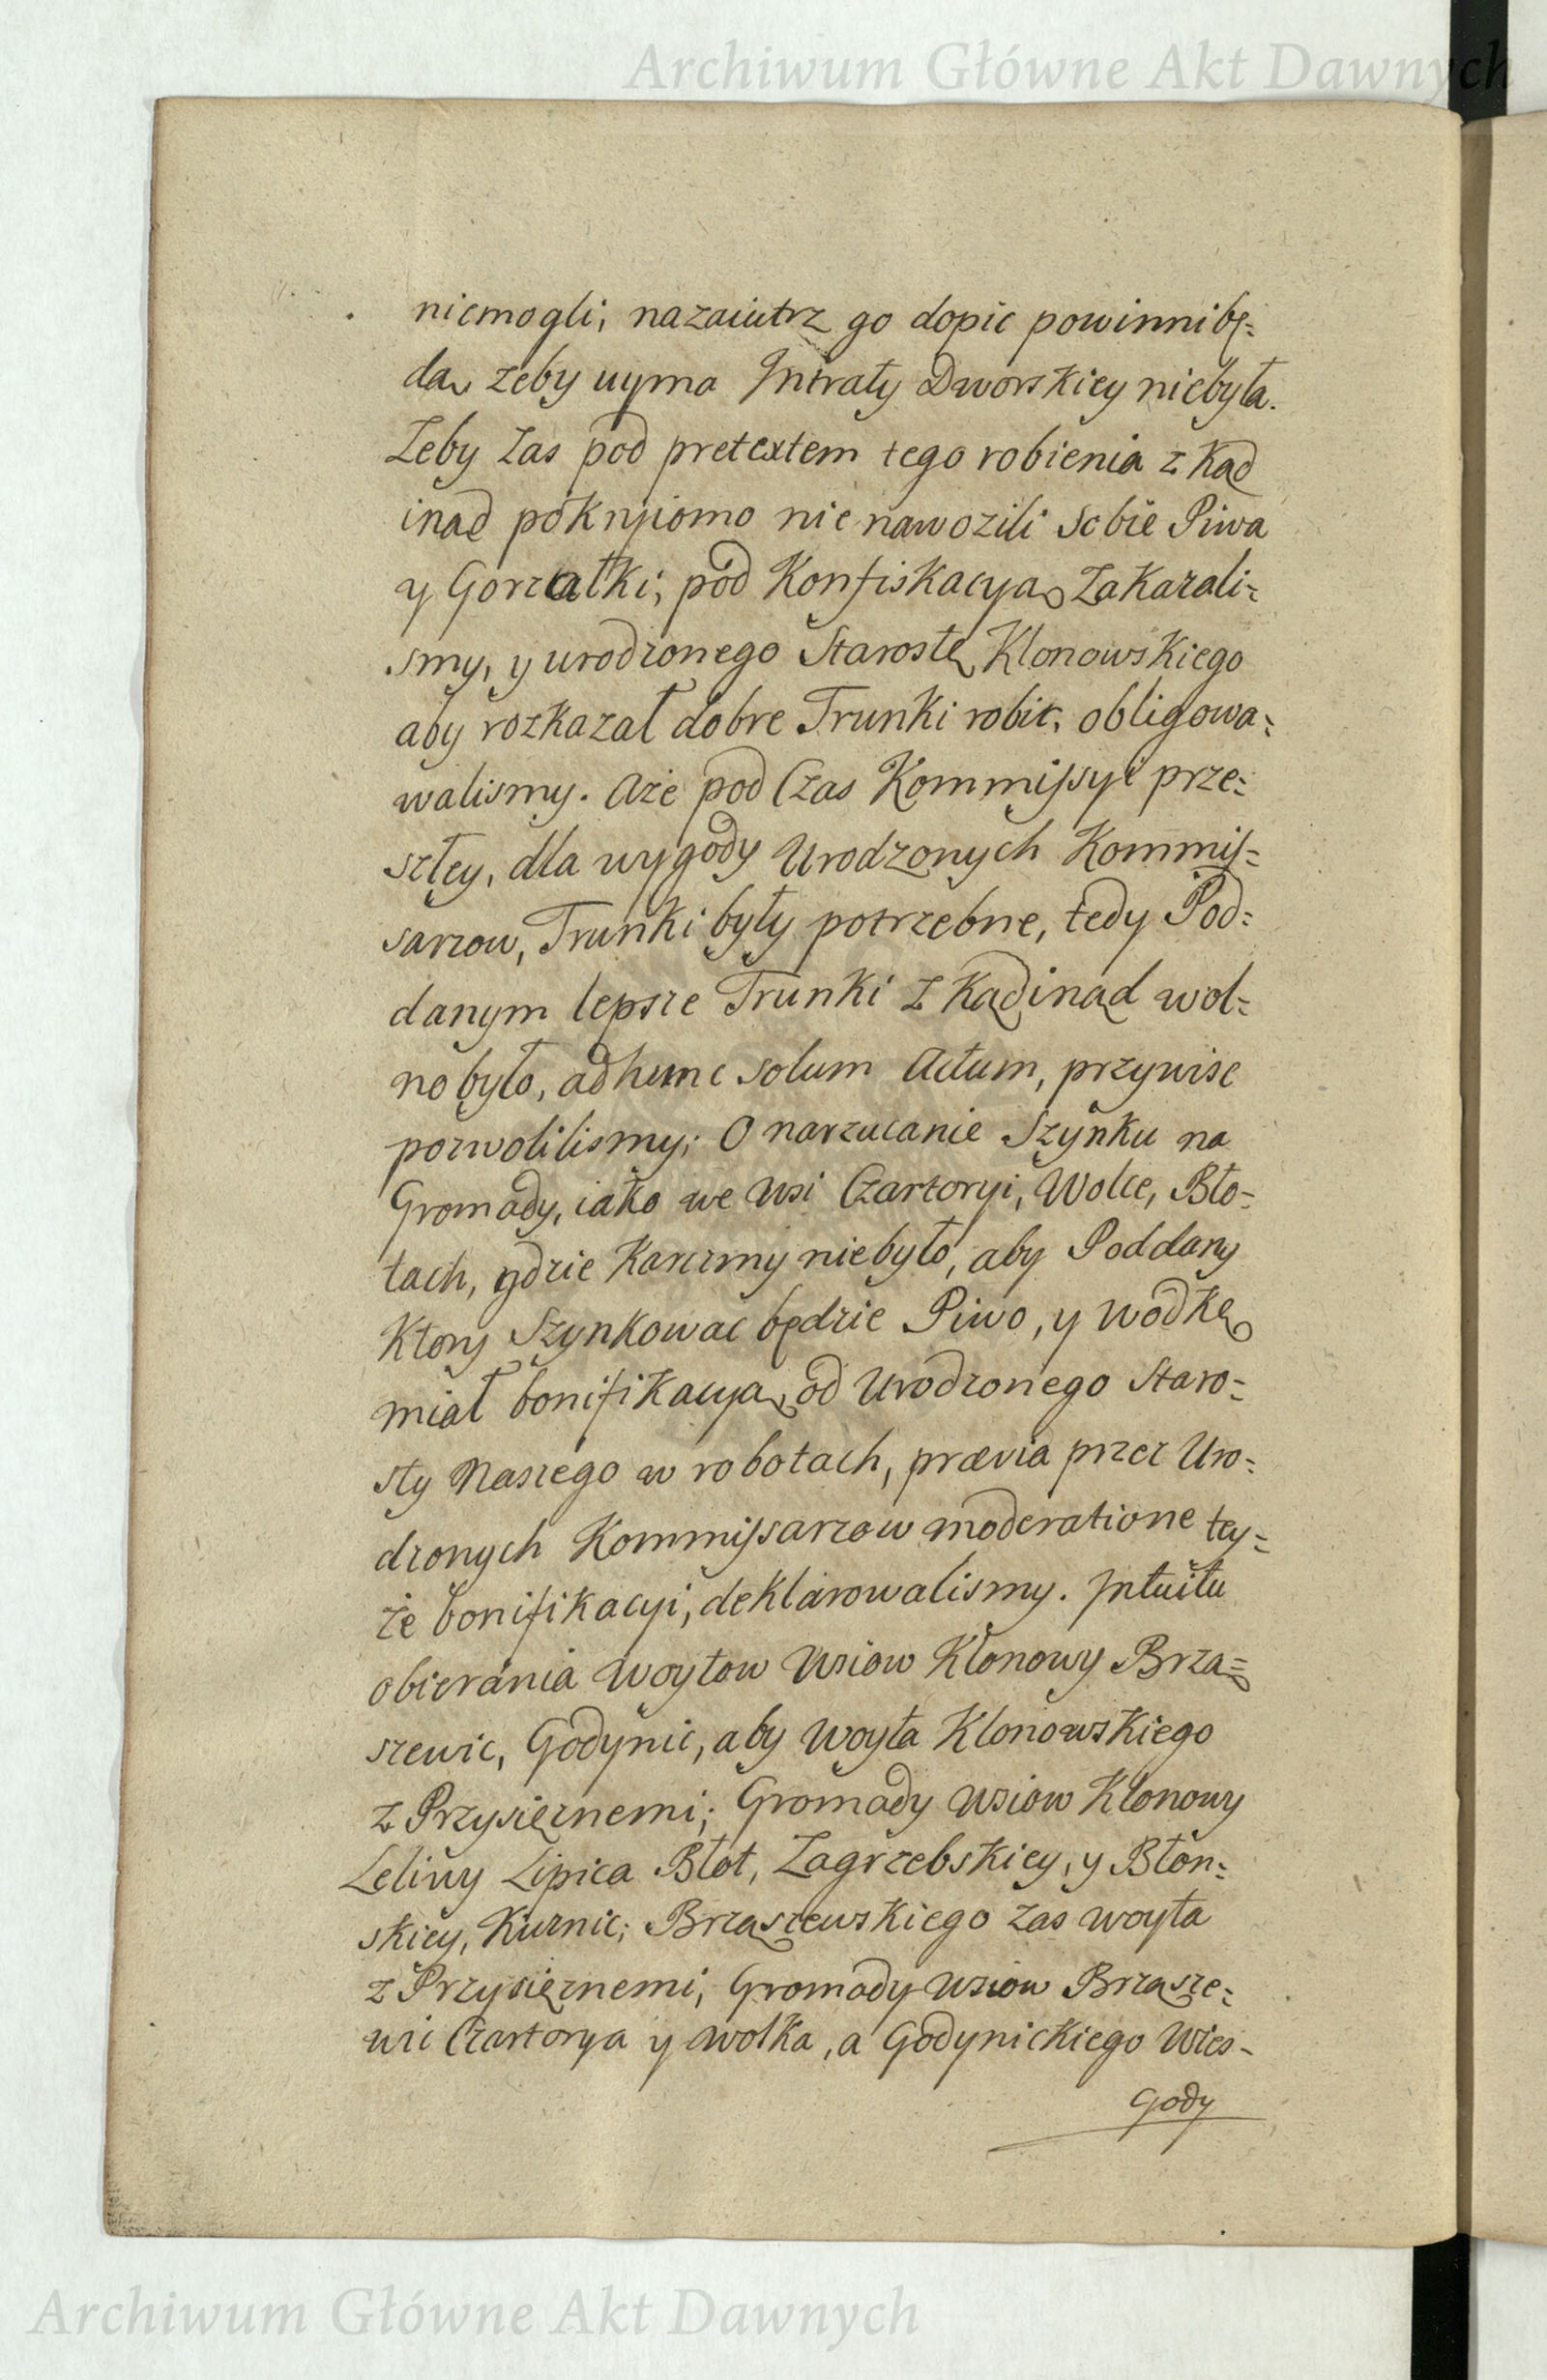 Archiwum Główne Akt Dawnych
niemogli; nazaiutrz go dopic powinni bę=
dą zeby uyma Intraty Dworskiey niebyła.
Zeby zas pod pretextem tego robienia z kąd
inąd pokryjomo nie nawozili sobie Piwa
y Gorzałki; pod Konfiskacyą zakazali=
smy, y urodzonego Starostę Klonowskiego
aby rozkazał dobre Trunki robic, obligowa=
walismy. Aże pod Czas Kommissyi prze=
szłey, dla wygody Urodzonych Kommis=
sarzow, Trunki były potrzebne, tedy Pod=
danym lepsze Trunki z kądinąd wol=
no było, ad hunc solum Actum, przywisc
pozwolilismy; O narzucanie Szynku na
Gromady, iako we wsi Czartoryi, Wolce, Bło=
tach, gdzie Karczmy niebyło, aby Poddany
Ktory Szynkowac będzie Piwo, y wodkę
miał bonifikacyą od Urodzonego Staro=
sty Naszego w robotach, prævia przez Uro=
dzonych Kommissarzow moderatione tey=
że bonifikacyi, deklarowalismy. Intuitu
obierania Woytow Wsiow Klonowy Brzą=
szewic, Godynic, aby Woyta Klonowskiego
z Przysięznemi; Gromady Wsiow Klonowy
Leliwy Lipica Błot, Zagrzebskiey, y Błon=
skiey, Kuznic; Brząszewskiego zas Woyta
z Przysięznemi, Gromady Wsiow Brząsze=
wic Czartorya y Wolka, a Godynickiego Wies=
Gody
Archiwum Główne Akt Dawnych